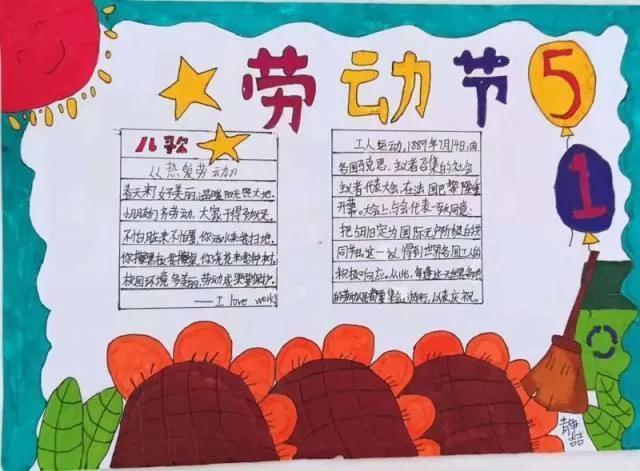 劳动节
5
1
儿歌
《热爱劳动》
春天来了好美丽,温暖阳光照大地。
小朋友们齐劳动,大家干得多欢天。
不怕脏来不怕累,你洒水来我扫地。
你擦黑板我擦桌,你浇花来我种树。
校园环境多美丽,劳动成果要保护。
——I love work
工人运动,1889年7月14日,由
各国马克思主义者召集的社会
主义者代表大会,在法国巴黎隆重
开幕。大会上,与会代表一致同意:
把5月1日定为国际无产阶级的共
同节日。这一决议得到世界各国工人的
积极响应。从此,每逢这一天世界各地
的劳动人民都要集会、游行,以表庆祝。
静
喆